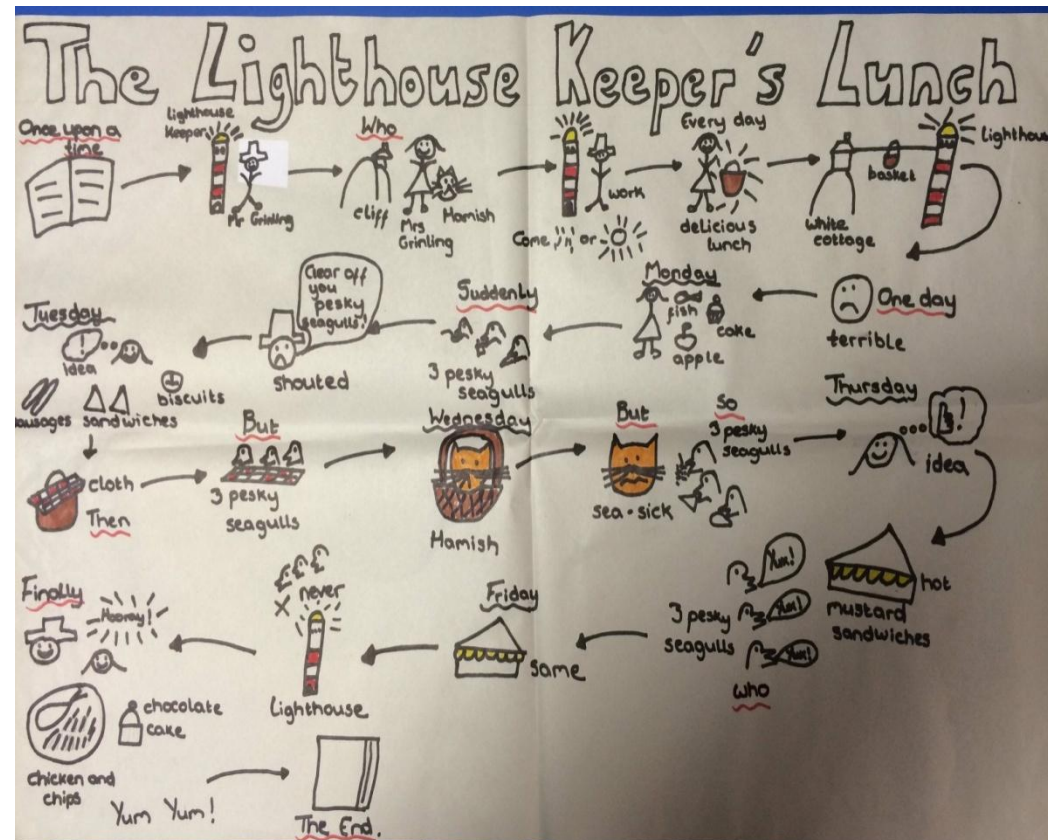 The Lighthouse Keeper's Lunch
Once upon a
time
lighthouse
Keeper
Mr Grinling
Who
cliff
Mrs
Grinling
Hamish
work
Come or
Every day
delicious
lunch
white
cottage
basket
Lighthouse
One day
terrible
Monday
fish
cake
apple
Suddenly
3 pesky
seagulls
Clear off
you
pesky
seagulls!
shouted
Tuesday
!
idea
biscuits
sausages sandwiches
cloth
Then
But
3 pesky
seagulls
Wednesday
Hamish
But
sea-sick
So
3 pesky
seagulls
Thursday
!
idea
hot
mustard
sandwiches
Yum!
Yum!
Yum!
3 pesky
seagulls
who
Friday
same
never
Lighthouse
Finally
Hooray!
chocolate
cake
chicken and
chips
Yum Yum!
The End.